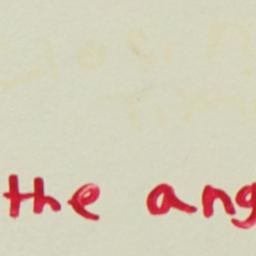 the ang